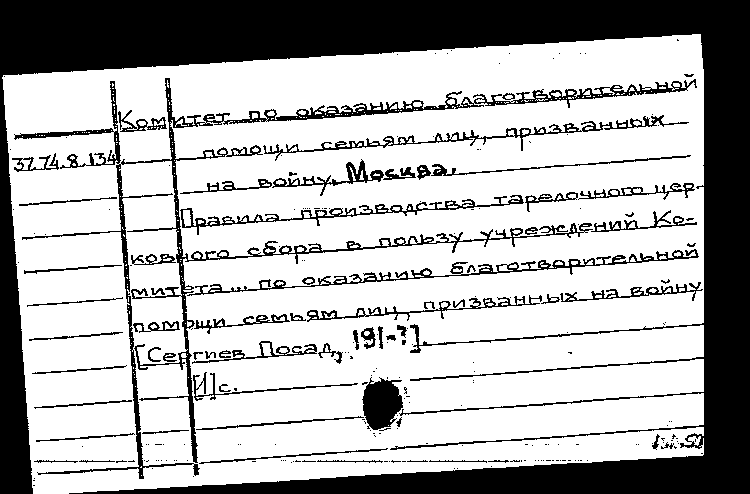 Комитет по оказанию благотворительной
37.74.8.134. помощи семьям лиц, призванных
на войну. Москва.
Правила производства тарелочного цер-
ковного сбора в пользу учреждений Ко-
митета... по оказанию благотворительной
помощи семьям лиц, призванных на войну
[Сергиев Посад, 191-?].
с.